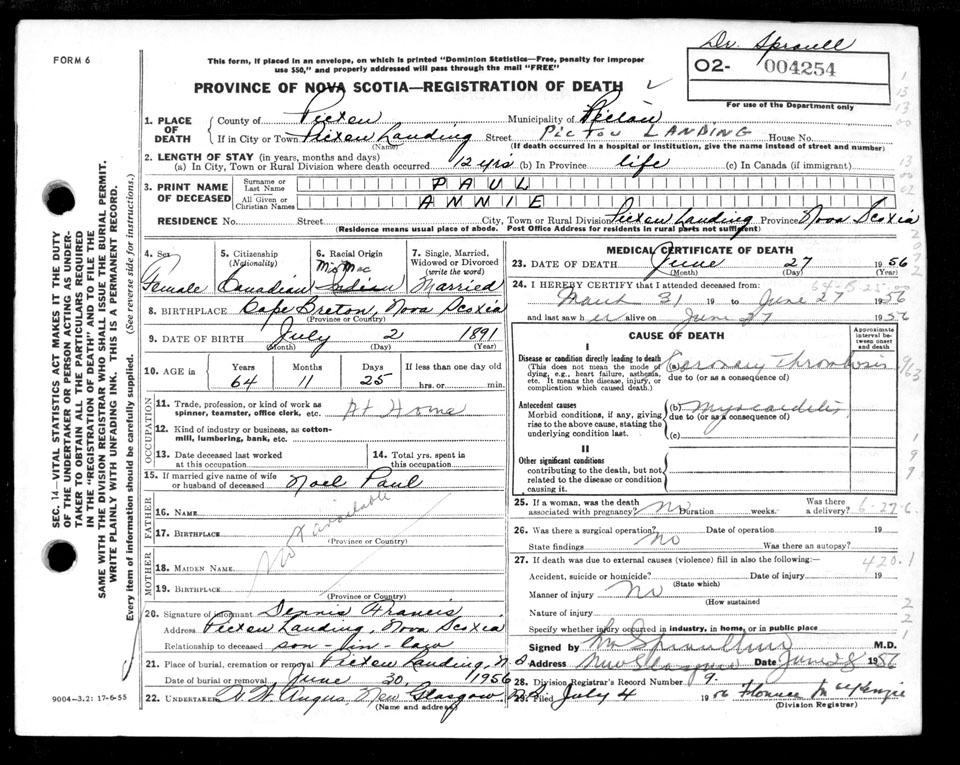 FORM 6
This form, if placed in an envelope, on which is printed "Dominion Statistics—Free, penalty for improper
use $50," and properly addressed will pass through the mail "FREE"
Dr. Sproull
O2- 004254
For use of the Department only
PROVINCE OF NOVA SCOTIA—REGISTRATION OF DEATH
1. PLACE OF DEATH
County of Picten Municipality of Pictou
If in City or Town Picten Landing Street PICTOU LANDING House No.
(Name) (If death occurred in a hospital or institution, give the name instead of street and number)
2. LENGTH OF STAY (in years, months and days)
(a) In City, Town or Rural Division where death occurred 12 yrs (b) In Province life (c) In Canada (if immigrant)
3. PRINT NAME OF DECEASED
Surname or Last Name PAUL
All Given or Christian Names AMMIE
RESIDENCE No. Street City, Town or Rural Division Picten Landing Province Nova Scotia
(Residence means usual place of abode. Post Office Address for residents in rural parts not sufficient)
4. Sex Female
5. Citizenship (Nationality) Canadian
6. Racial Origin Mic Mac Indian
7. Single, Married, Widowed or Divorced (write the word) Married
8. BIRTHPLACE Cape Breton, Nova Scotia
(Province or Country)
9. DATE OF BIRTH July 2 1891
(Month) (Day) (Year)
10. AGE in Years 64 Months 11 Days 25 If less than one day old hrs. or min.
OCCUPATION
11. Trade, profession, or kind of work as spinner, teamster, office clerk, etc. At Home
12. Kind of industry or business, as cotton-mill, lumbering, bank, etc.
13. Date deceased last worked at this occupation
14. Total yrs. spent in this occupation
15. If married give name of wife or husband of deceased Noel Paul
FATHER
16. NAME
17. BIRTHPLACE
(Province or Country)
Not available
MOTHER
18. MAIDEN NAME
19. BIRTHPLACE
(Province or Country)
20. Signature of informant Dennis Francis
Address Picten Landing, Nova Scotia
Relationship to deceased son-in-law
21. Place of burial, cremation or removal Picten Landing, N.S.
Date of burial or removal June 30, 1956
22. UNDERTAKER H. W. Angus, New Glasgow N.S.
(Name and address)
MEDICAL CERTIFICATE OF DEATH
23. DATE OF DEATH June 27 1956
(Month) (Day) (Year)
24. I HEREBY CERTIFY that I attended deceased from:
64-B-25-00
March 31 19 to June 27 1956
and last saw her alive on June 27 1956
CAUSE OF DEATH
Approximate interval between onset and death
I
Disease or condition directly leading to death
(This does not mean the mode of dying, e.g., heart failure, asthma, etc. It means the disease, injury, or complication which caused death.)
(a) Coronary Thrombosis
due to (or as a consequence of)
Antecedent causes
Morbid conditions, if any, giving rise to the above cause, stating the underlying condition last.
(b) Myocarditis
due to (or as a consequence of)
(c)
II
Other significant conditions
contributing to the death, but not related to the disease or condition causing it.
25. If a woman, was the death associated with pregnancy? No Duration weeks. Was there a delivery?
6-27-6
26. Was there a surgical operation? No Date of operation 19
State findings Was there an autopsy?
27. If death was due to external causes (violence) fill in also the following:—
420.1
Accident, suicide or homicide? Date of injury 19
(State which)
Manner of injury No
(How sustained
Nature of injury
Specify whether injury occurred in industry, in home, or in public place
Signed by M.D.
Address New Glasgow Date June 28 1956
28. Division Registrar's Record Number 9.
29. Filed July 4 1956 Florence McKenzie
(Division Registrar)
9004—3.2: 17-6-55
SEC. 14—VITAL STATISTICS ACT MAKES IT THE DUTY
OF THE UNDERTAKER OR PERSON ACTING AS UNDER-
TAKER TO OBTAIN ALL THE PARTICULARS REQUIRED
IN THE "REGISTRATION OF DEATH" AND TO FILE THE
SAME WITH THE DIVISION REGISTRAR WHO SHALL ISSUE THE BURIAL PERMIT.
WRITE PLAINLY WITH UNFADING INK. THIS IS A PERMANENT RECORD.
Every item of information should be carefully supplied. (See reverse side for instructions.)